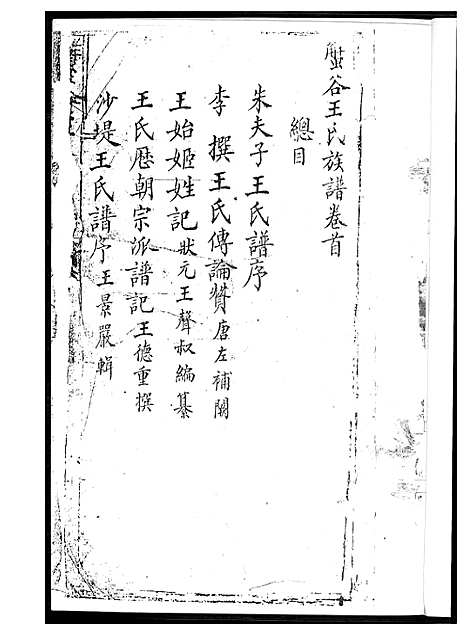 蟹谷王氏族譜卷首
總目
朱夫子王氏譜序
李 撰王氏傳論贊唐左補闕
王始姬姓記狀元王聲叔編纂
王氏歷朝宗派譜記王德重撰
沙堤王氏譜序王景嚴輯